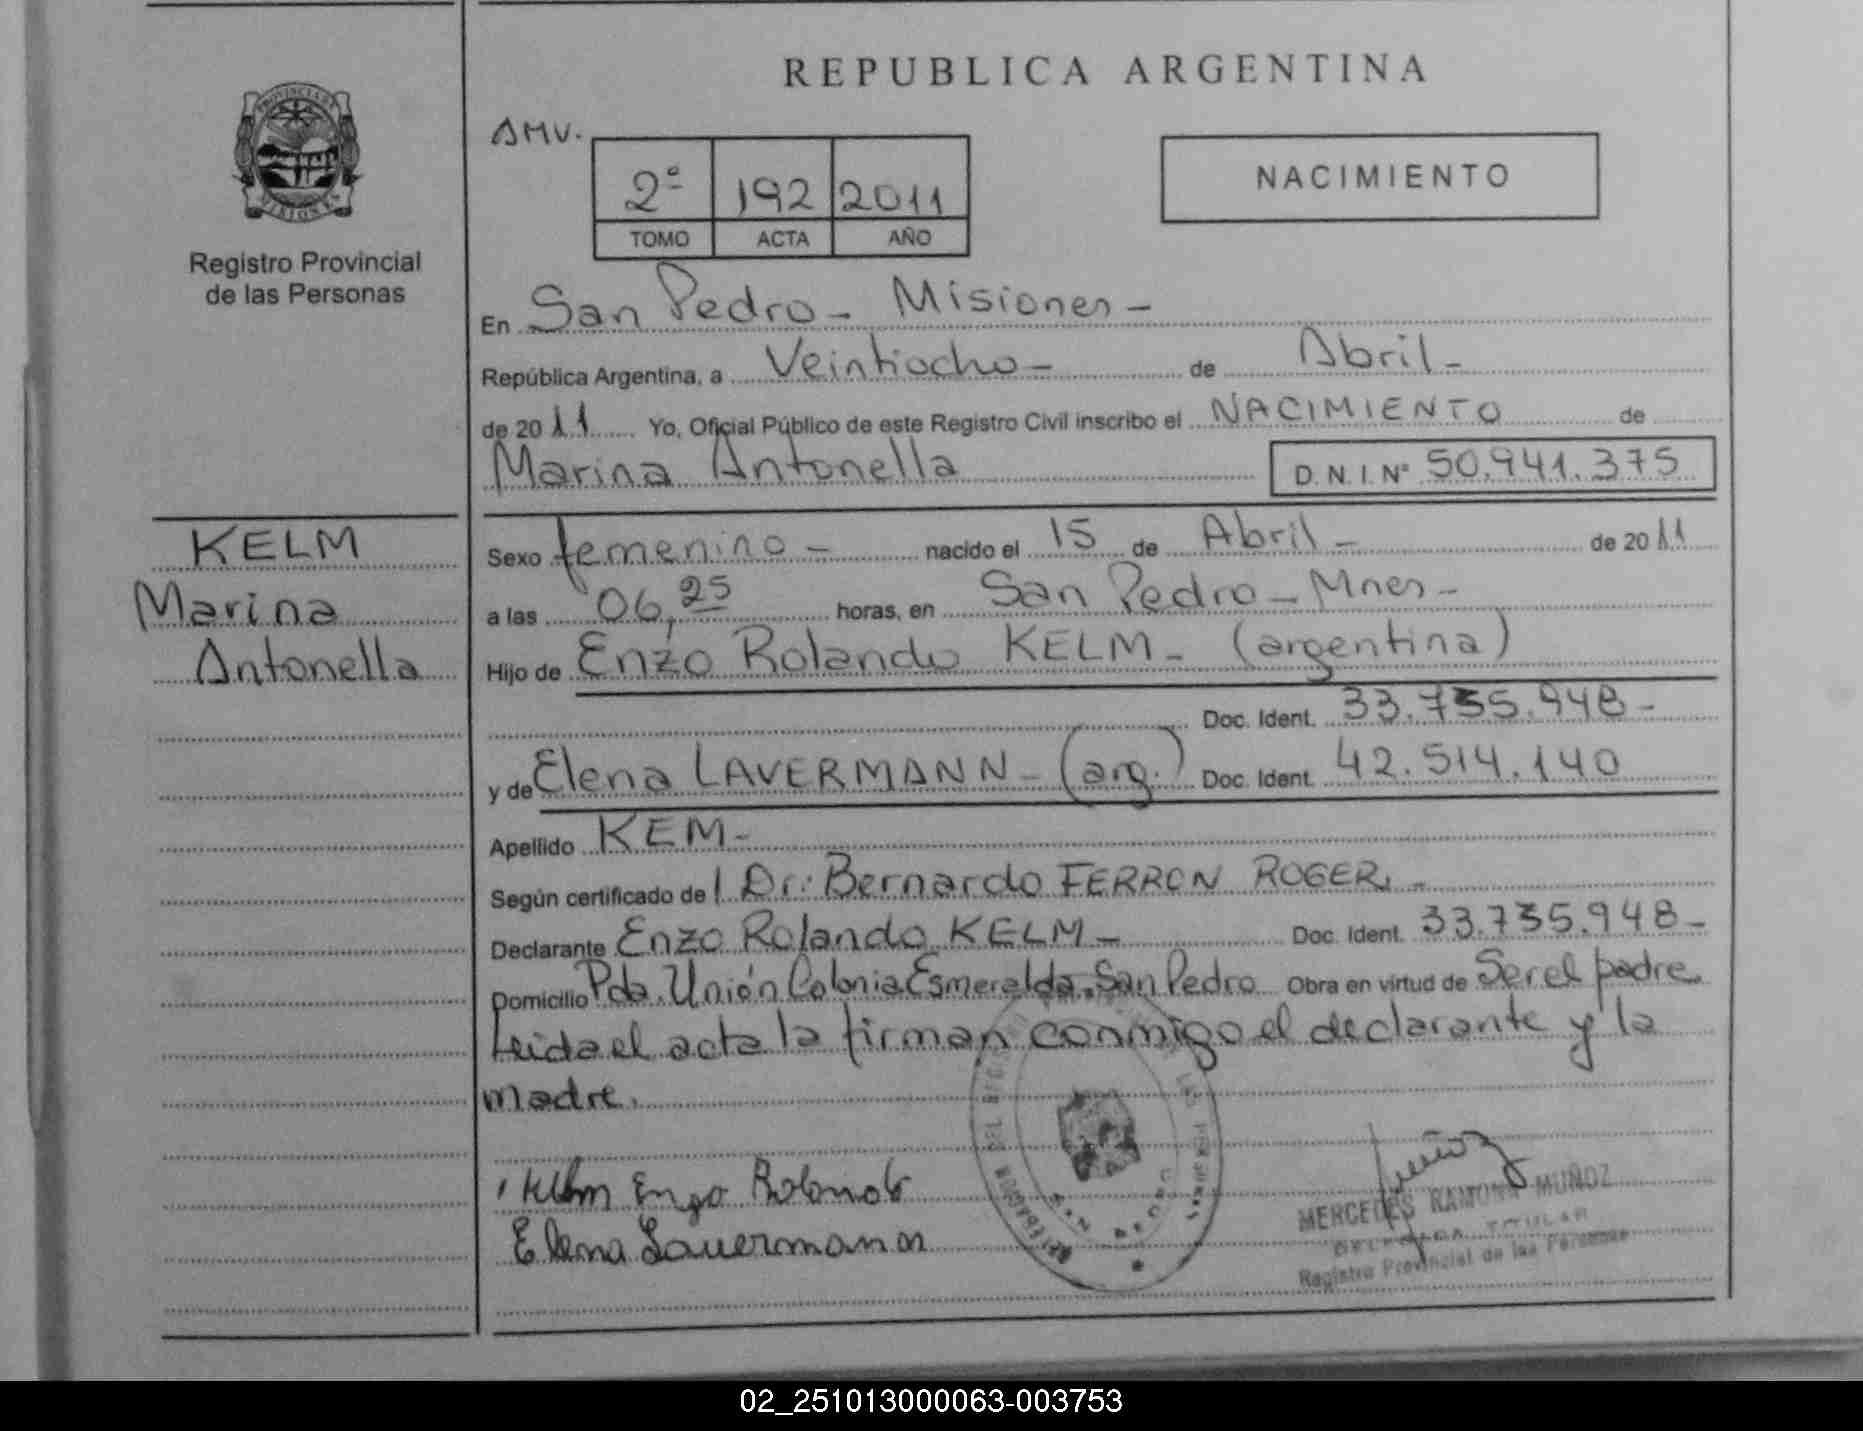 REPUBLICA ARGENTINA
AMV.
2º 192 2011
TOMO ACTA AÑO
NACIMIENTO
PROVINCIA DE
MISIONES
Registro Provincial
de las Personas
En San Pedro - Misiones -
República Argentina, a Veintiocho - de Abril -
de 20 11 Yo, Oficial Público de este Registro Civil inscribo el NACIMIENTO de
Marina Antonella D.N.I. Nº 50.941.375
KELM
Marina
Antonella
Sexo femenino - nacido el 15 de Abril - de 20 11
a las 06,25 horas, en San Pedro - Mnes -
Hijo de Enzo Rolando KELM - (argentina)
Doc. Ident. 33.735.948 -
y de Elena LAVERMANN - (arg.) Doc. Ident. 42.514.140
Apellido KEM -
Según certificado del Dr: Bernardo FERRON ROGER. -
Declarante Enzo Rolando KELM - Doc. Ident. 33.735.948 -
Domicilio Pda. Unión Colonia Esmeralda. San Pedro Obra en virtud de Ser el padre
Leida el acta la firman conmigo el declarante y la
madre.
Kelm Enzo Rolando
Elena Lauermann
Muñoz
MERCEDES RAMONA MUÑOZ
DELEGADA TITULAR
Registro Provincial de las Personas
02_251013000063-003753